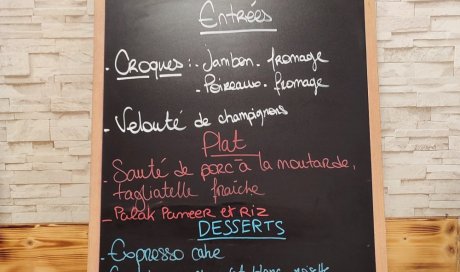 Entrées
- Croques : - Jambon - fromage
- Poireaux - fromage
- Velouté de champignons
Plat
- Sauté de porc à la moutarde,
tagliatelle fraîche
- Palak Paneer et Riz
DESSERTS
- Espresso cake